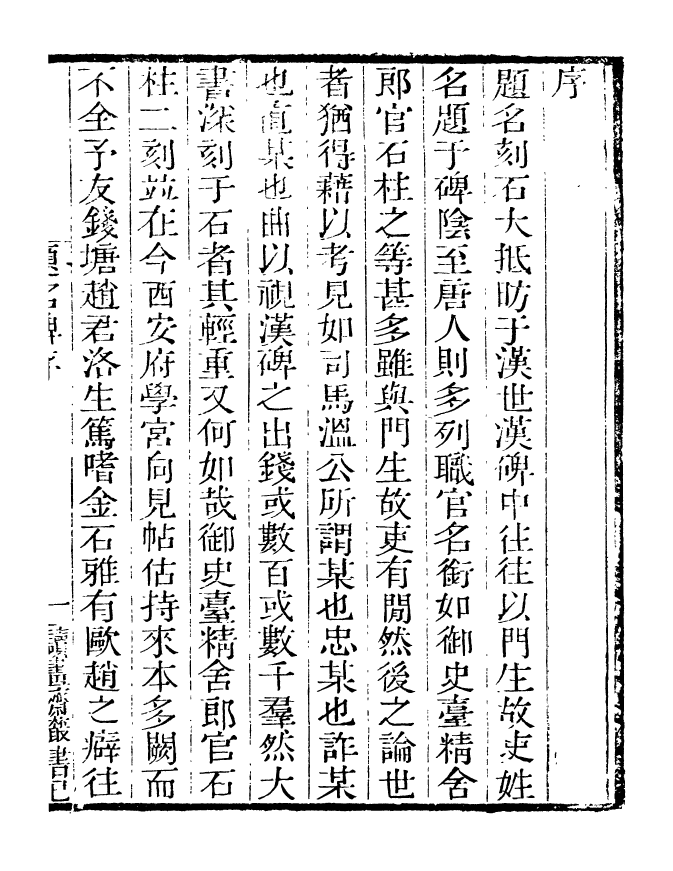 序
題名刻石大抵昉于漢世漢碑中往往以門生故吏姓
名題于碑陰至唐人則多列職官名銜如御史臺精舍
郎官石柱之等甚多雖與門生故吏有閒然後之論世
者猶得藉以考見如司馬溫公所謂某也忠某也詐某
也直某也曲以視漢碑之出錢或數百或數千羣然大
書深刻于石者其輕重又何如哉御史臺精舍郎官石
柱二刻竝在今西安府學宮向見帖估持來本多闕而
不全予友錢塘趙君洛生篤嗜金石雅有歐趙之癖往
題名碑序 一 讀畫齋叢書己